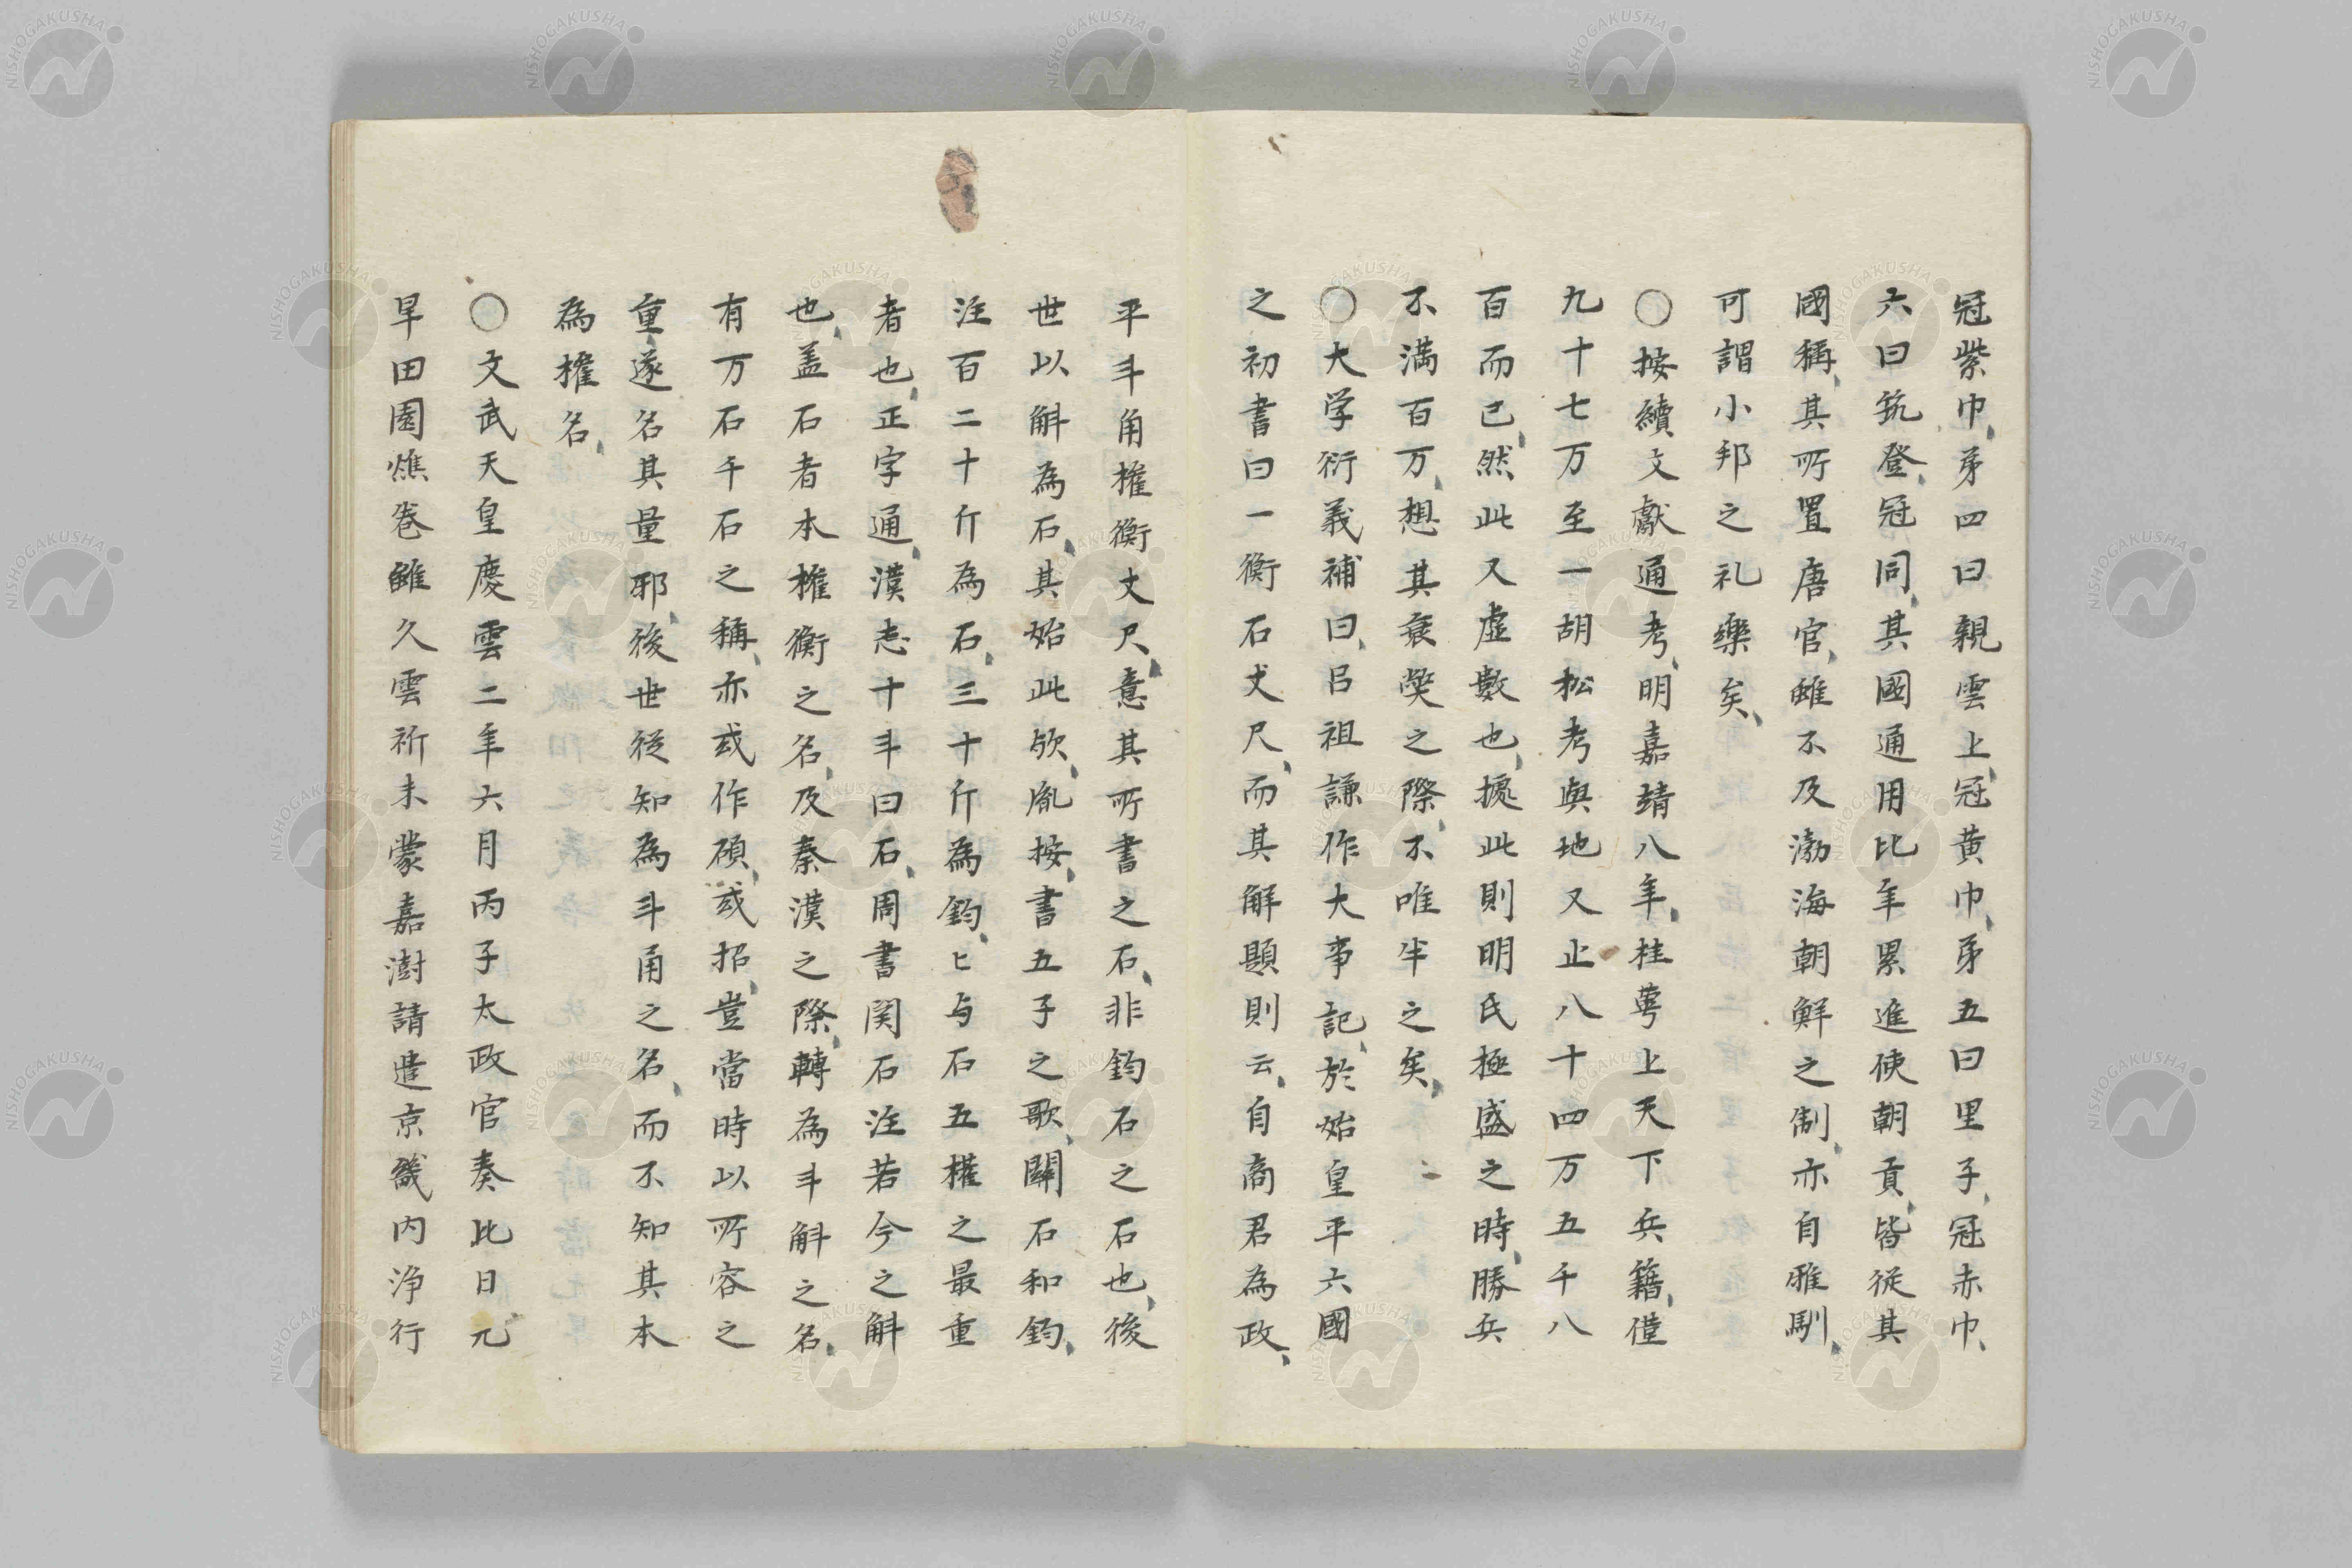 冠紫巾、苐四曰親雲上、冠黄巾、苐五曰里子、冠赤巾、
六曰筑登、冠同、其國通用比年累進使朝貢、皆從其
國稱、其所置唐官、雖不及渤海朝鮮之制、亦自雅馴、
可謂小邦之礼樂矣、
○按續文獻通考、明嘉靖八年、桂萼上天下兵籍、僅
九十七万至一胡松考輿地又止八十四万五千八
百而已、然此又虚數也、據此則明氏極盛之時、勝兵
不満百万、想其衰獘之際、不唯半之矣、
○大学衍義補曰、呂祖謙作大事記、於始皇平六國
之初書曰一衡石丈尺、而其解題則云、自商君為政、
平斗甬權衡丈尺、意其所書之石、非鈞石之石也、後
世以斛為石、其始此欤、胤按、書五子之歌、關石和鈞、
注百二十斤為石、三十斤為鈞、匕与石五權之最重
者也、正字通、漢志十斗曰石、周書関石注若今之斛
也、盖石者本権衡之名、及秦漢之際、轉為斗斛之名、
有万石千石之稱、亦或作碩、或招、豈當時以所容之
重、遂名其量邪、後世從知為斗甬之名、而不知其本
為権名、
○文武天皇慶雲二年六月丙子太政官奏比日亢
旱田園燋卷雖久雲祈未蒙嘉澍請遣京畿内浄行